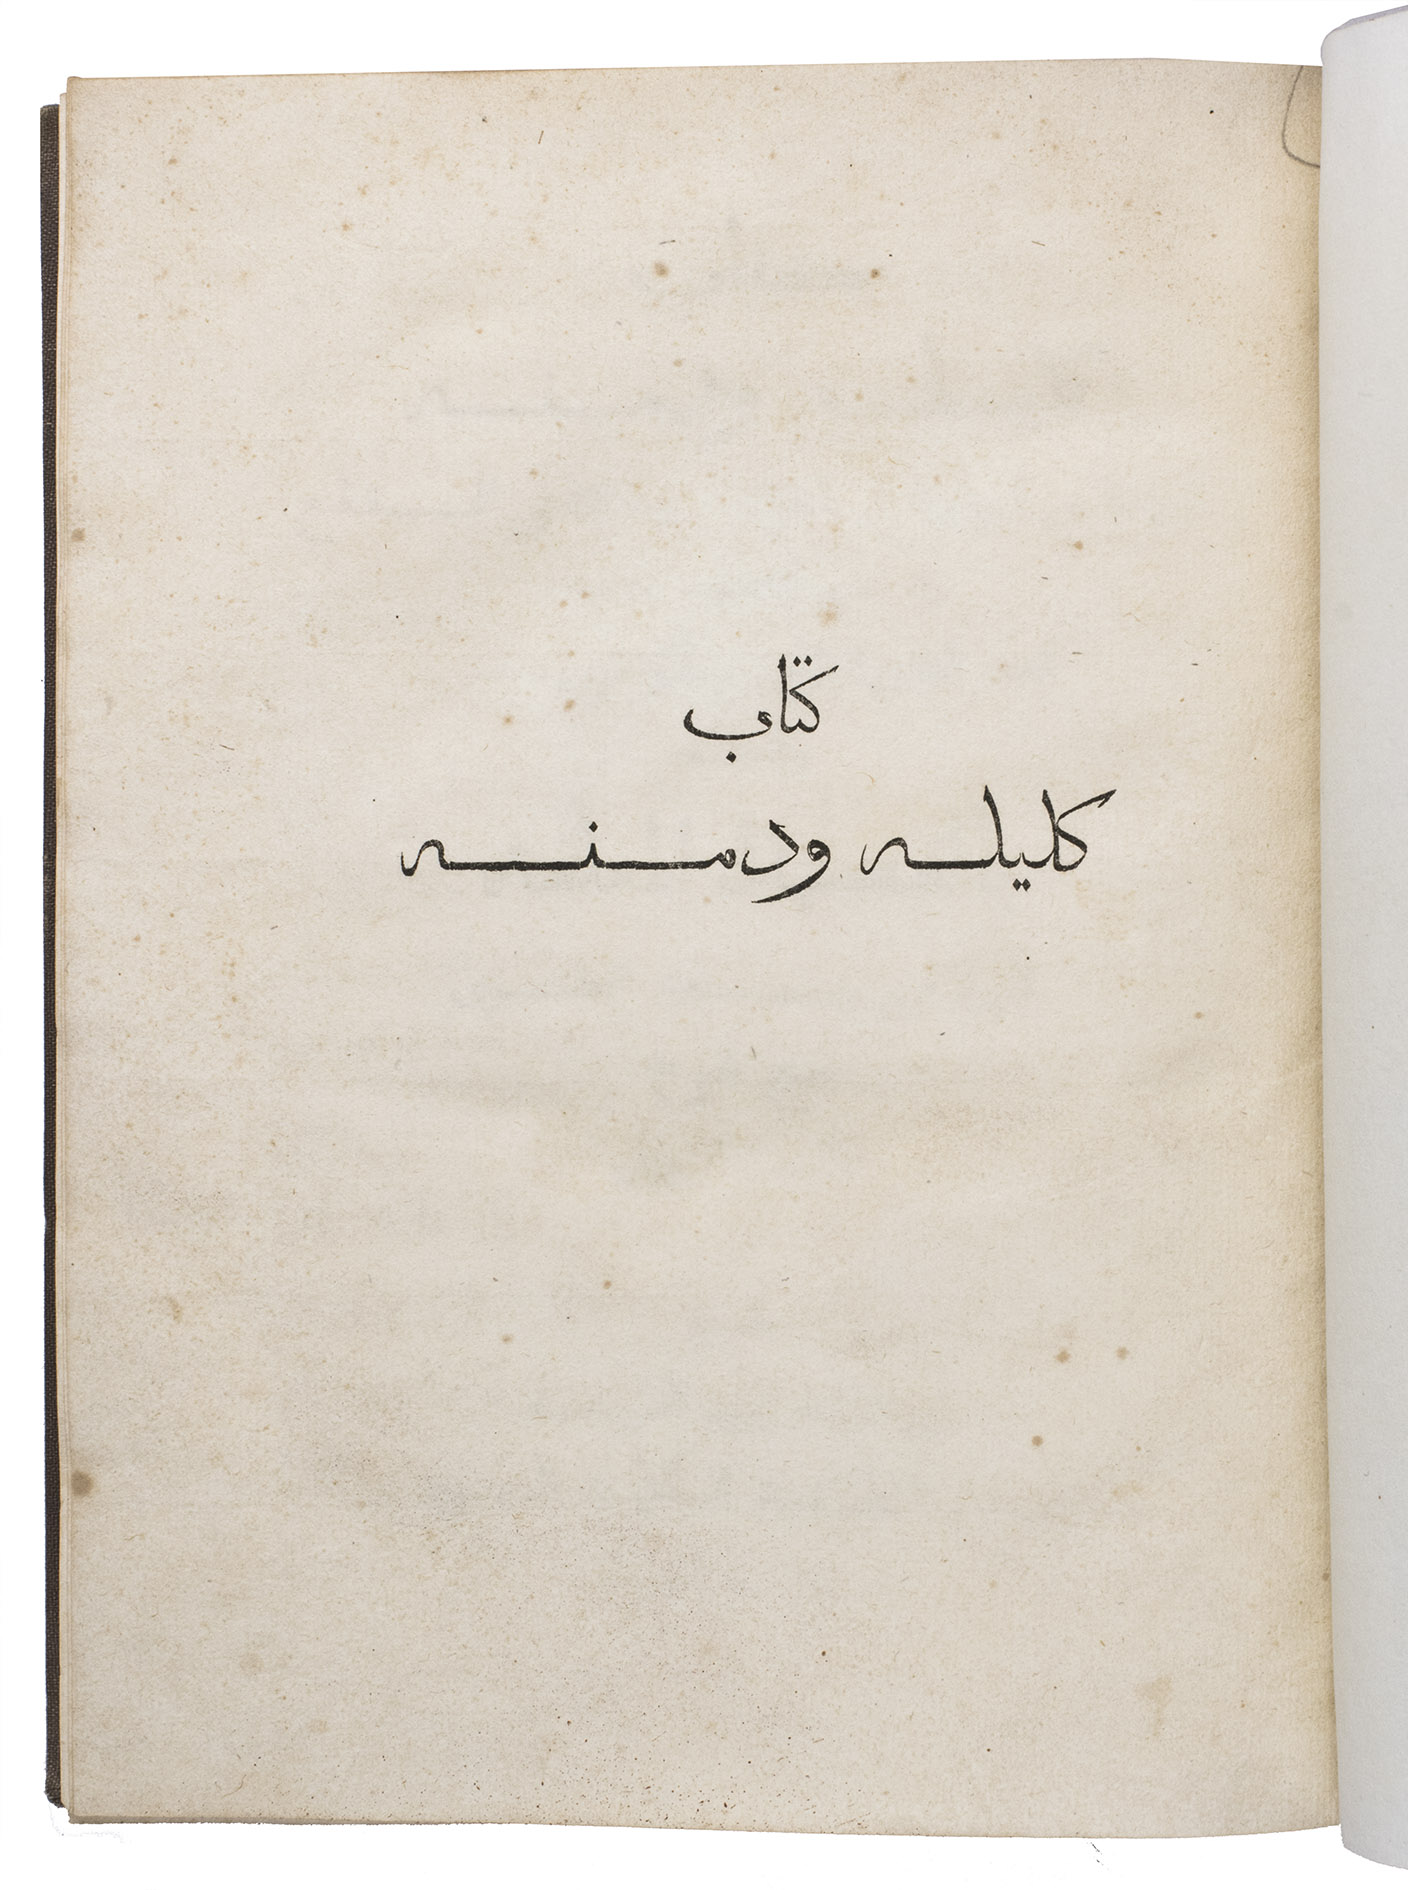 كتاب
كليله ودمنه